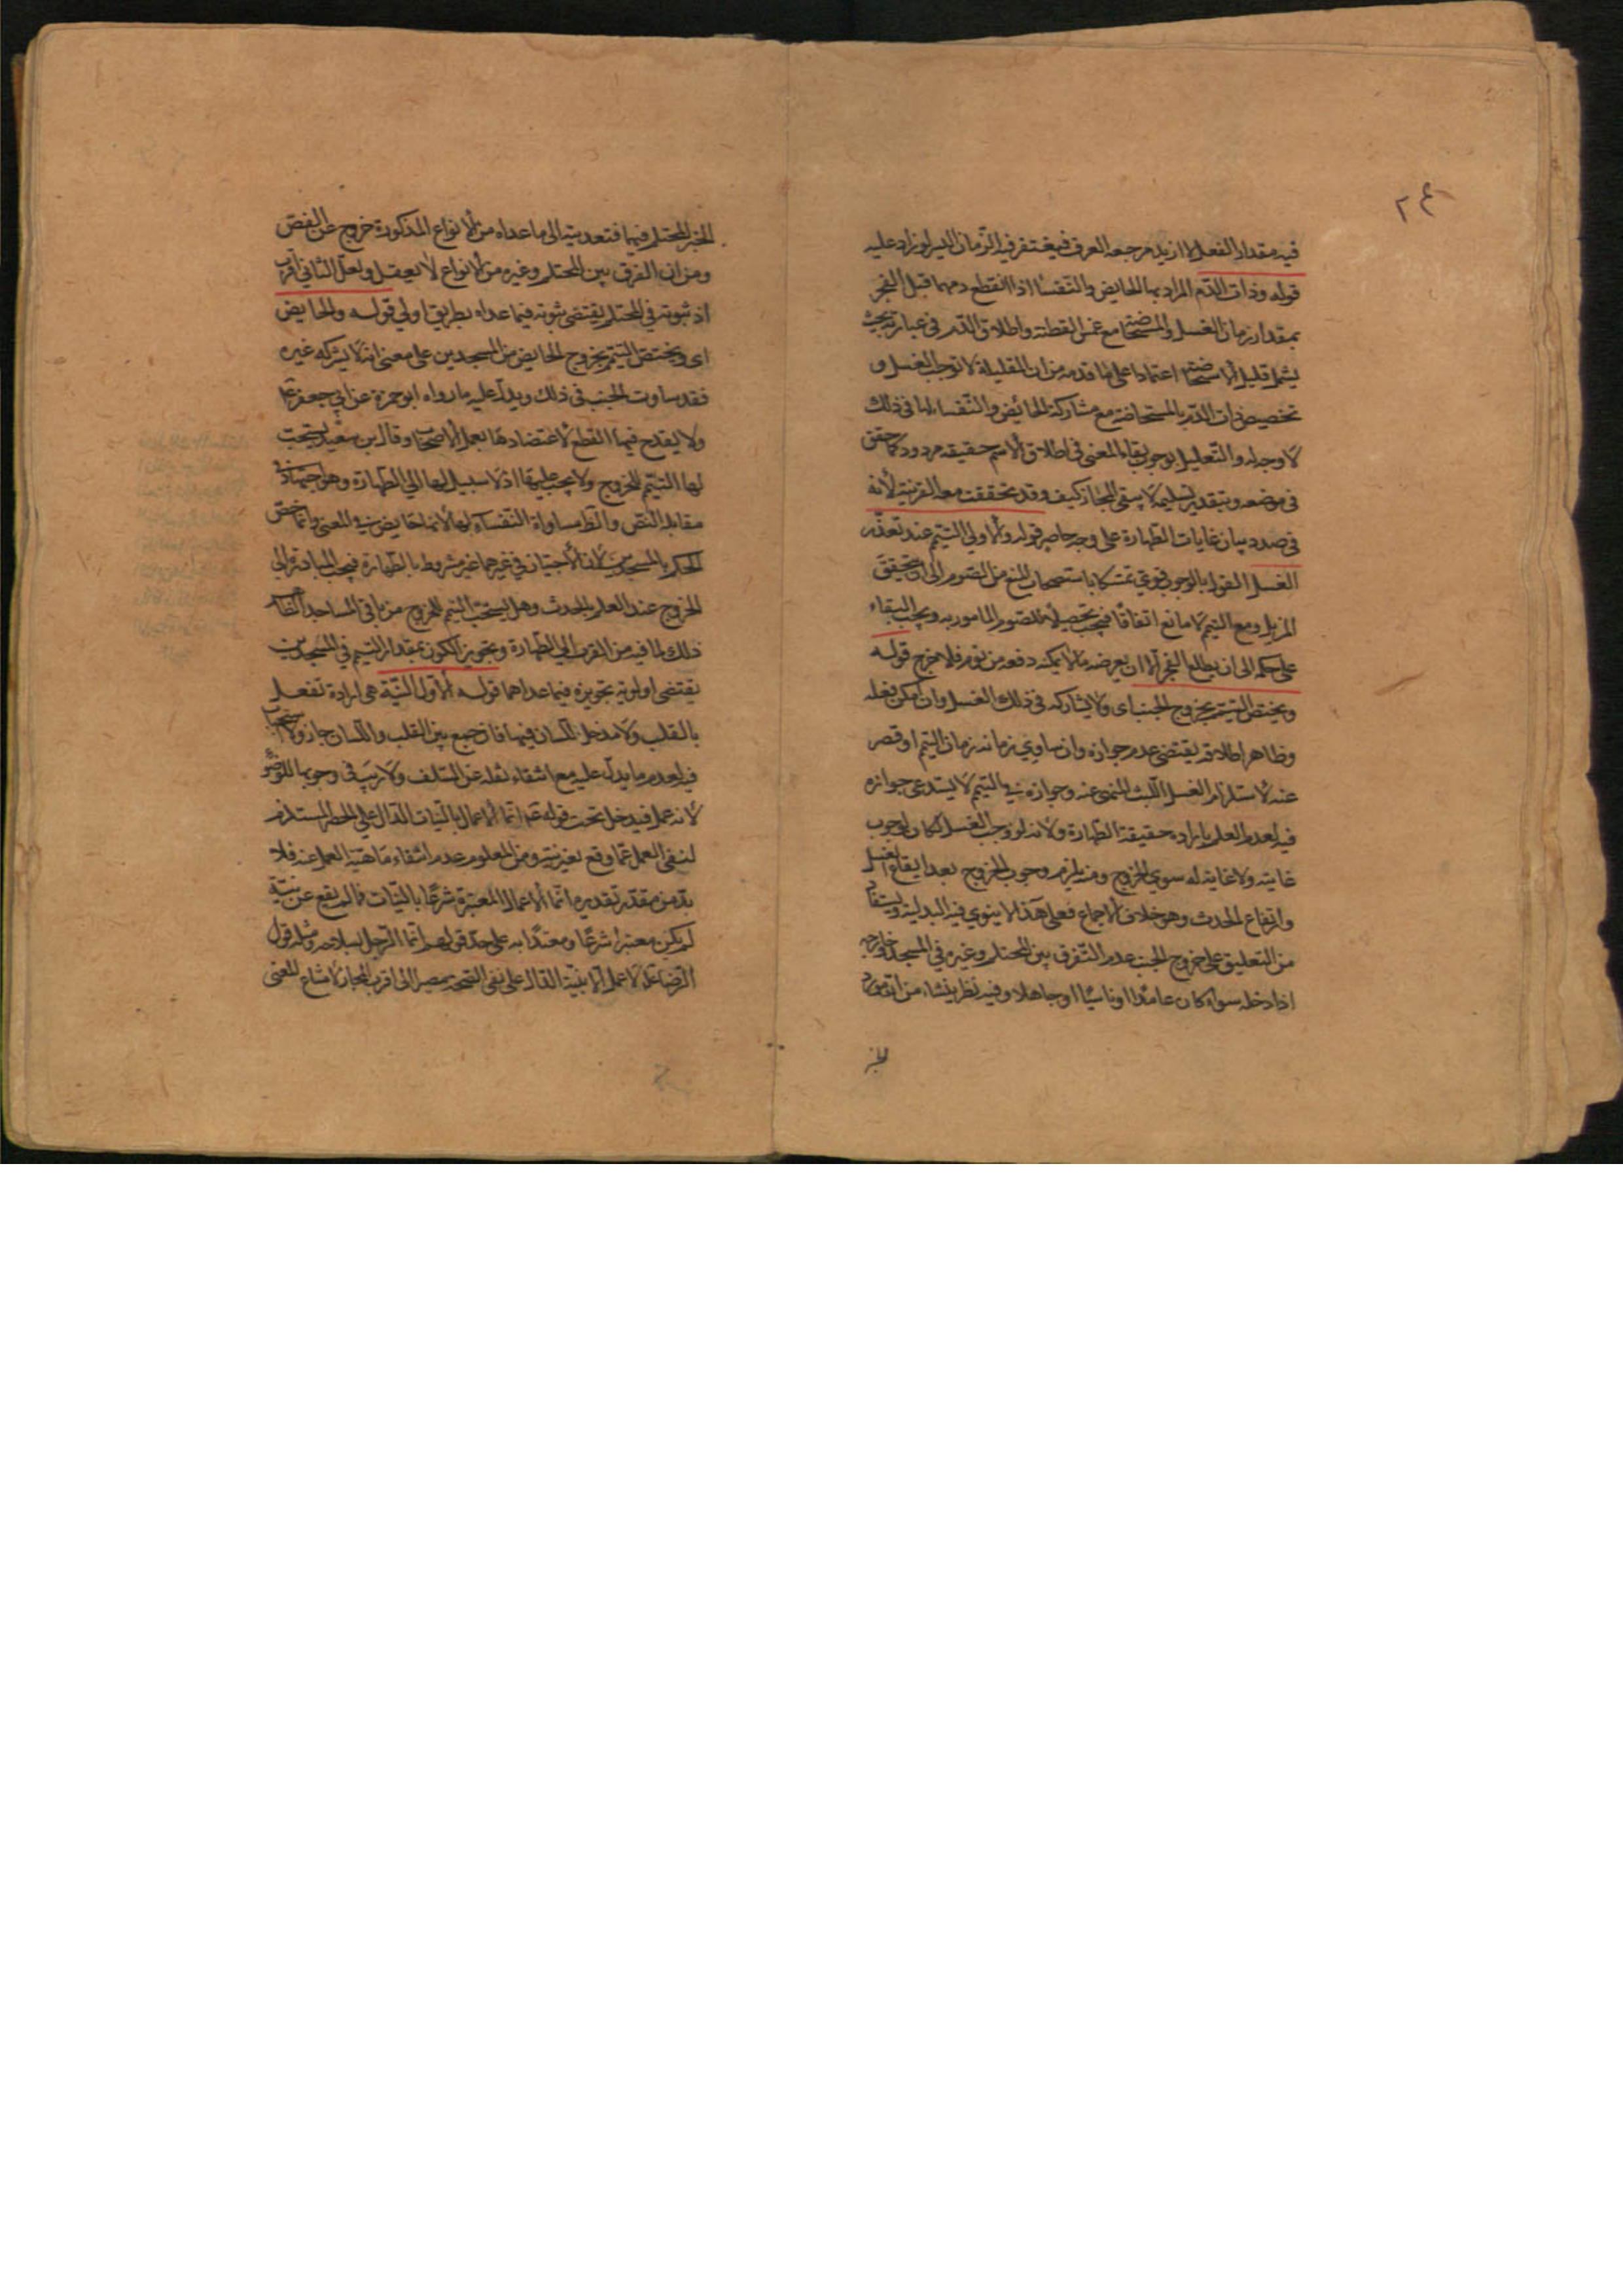 ٢٤
فيه مقدار الفعل لا ازيد مرجعه العرف فيغتفر فيه الزمان اليسير لو زاد عليه
قوله وذات الدم المراد بها الحايض والنفساء اذا انقطع دمهما قبل الفجر
بمقدار زمان الغسل والمستحاضة مع غمس القطنة واطلاق الدم في عبارته بحيث
يشمل قليل الاستحاضة اعتمادا على ما قدمه من ان القليلة لا توجب الغسل و
تخصيص ذات الدم بالمستحاضة مع مشاركة الحائض والنفساء لها في ذلك
لا وجه له والتعليل بوجوب بقاء المعنى في اطلاق الاسم حقيقة مردود كما حقق
في موضعه وبتقدير تسليمه لا ينتفى المجاز كيف وقد تحققت معه القرينة لأنه
في صدد بيان غايات الطهارة على وجه حاصر قوله والاولى التيمم عند تعذر
الغسل القول بالوجوب قوي تمسكا باستصحاب المنع من الصوم الى ان يتحقق
المزيل ومع التيمم لا مانع اتفاقا فيجب تحصيلا للصوم المامور به ويجب البقاء
على حكمه الى ان يطلع الفجر الا ان يعرضه ما لا يمكنه دفعه من نوم فلا حرج قوله
ويختص التيمم بخروج الجنب اى ولا يشاركه في ذلك الغسل وان امكن فعله
وظاهر اطلاقه يقتضى عدم جوازه وان ساوى زمانه زمان التيمم او قصر
عنه لاستلزام الغسل اللبث المنهى عنه وجوازه في التيمم لا يستدعى جوازه
فيه لعدم العلم بارادة حقيقة الطهارة ولانه لو وجب الغسل لكان لوجوب
غايته ولا غاية له سوى الخروج ومنه يلزم وجوب الخروج بعد ايقاع الغسل
وارتفاع الحدث وهو خلاف الاجماع فعلى هذا لا ينوي فيه البدلية ويستفاد
من التعليق على خروج الجنب عدم الفرق بين المحتلم وغيره في المسجد وخارجه
اذا دخله سواء كان عامدا او ناسيا او جاهلا وفيه نظر ينشاء من ان مورد
الخبر
الخبر المحتلم فيها فتعديته الى ما عداه من الانواع المذكورة خروج عن النص
ومن ان الفرق بين المحتلم وغيره من الانواع لا يعقل ولعل الثاني اقرب
اذ ثبوته في المحتلم يقتضى ثبوته فيما عداه بطريق اولى قوله والحايض
اى ويختص التيمم بخروج الحايض من المسجدين على معنى انه لا يشركه غيره
فقد ساوت الجنب في ذلك ويدل عليه ما رواه ابو حمزة عن ابي جعفر ع
ولا يقدح فيها القطع لاعتضادها بعمل الاصحاب وقال بن سعيد يستحب
لها التيمم للخروج ولا يجب عليها اذ لا سبيل لها الى الطهارة وهو اجتهاد في
مقابلة النص والظ مساواة النفساء لها لانها حايض في المعنى وانما خص
الحكم بالمسجدين لان الاجتياز في غيرهما غير مشروط بالطهارة فيجب المبادرة الى
الخروج عند العلم بالحدث وهل يستحب التيمم للخروج من باقي المساجد الظاهر
ذلك لما فيه من القرب الى الطهارة وتجويز الكون بمقدار التيمم في المسجدين
يقتضى اولوية تجويزه فيما عداهما قوله الاول النية هى ارادة تفعل
بالقلب ولا مدخل للسان فيها فان جمع بين القلب واللسان جاز ولا استحباب
فيه لعدم ما يدل عليه مع انتفاء نقله عن السلف ولا ريب في وجوبها للوضوء
لانه عمل فيدخل تحت قوله ع انما الاعمال بالنيات الدال على الحصر المستلزم
لنفى العمل عما وقع بغير نية ومن المعلوم عدم انتفاء ماهية العمل عنه فلا
بد من مقدر تقديره انما الاعمال المعتبرة شرعا بالنيات فما لم يقع عن نية
لم يكن معتبرا شرعا ومعتدا به على حد قولهم انما الرجل بسلاحه ومثله قول
الرضا ع لا عمل الا بنية الدال على نفى الصحة مصيرا الى اقرب المجاز لامتناع المعنى